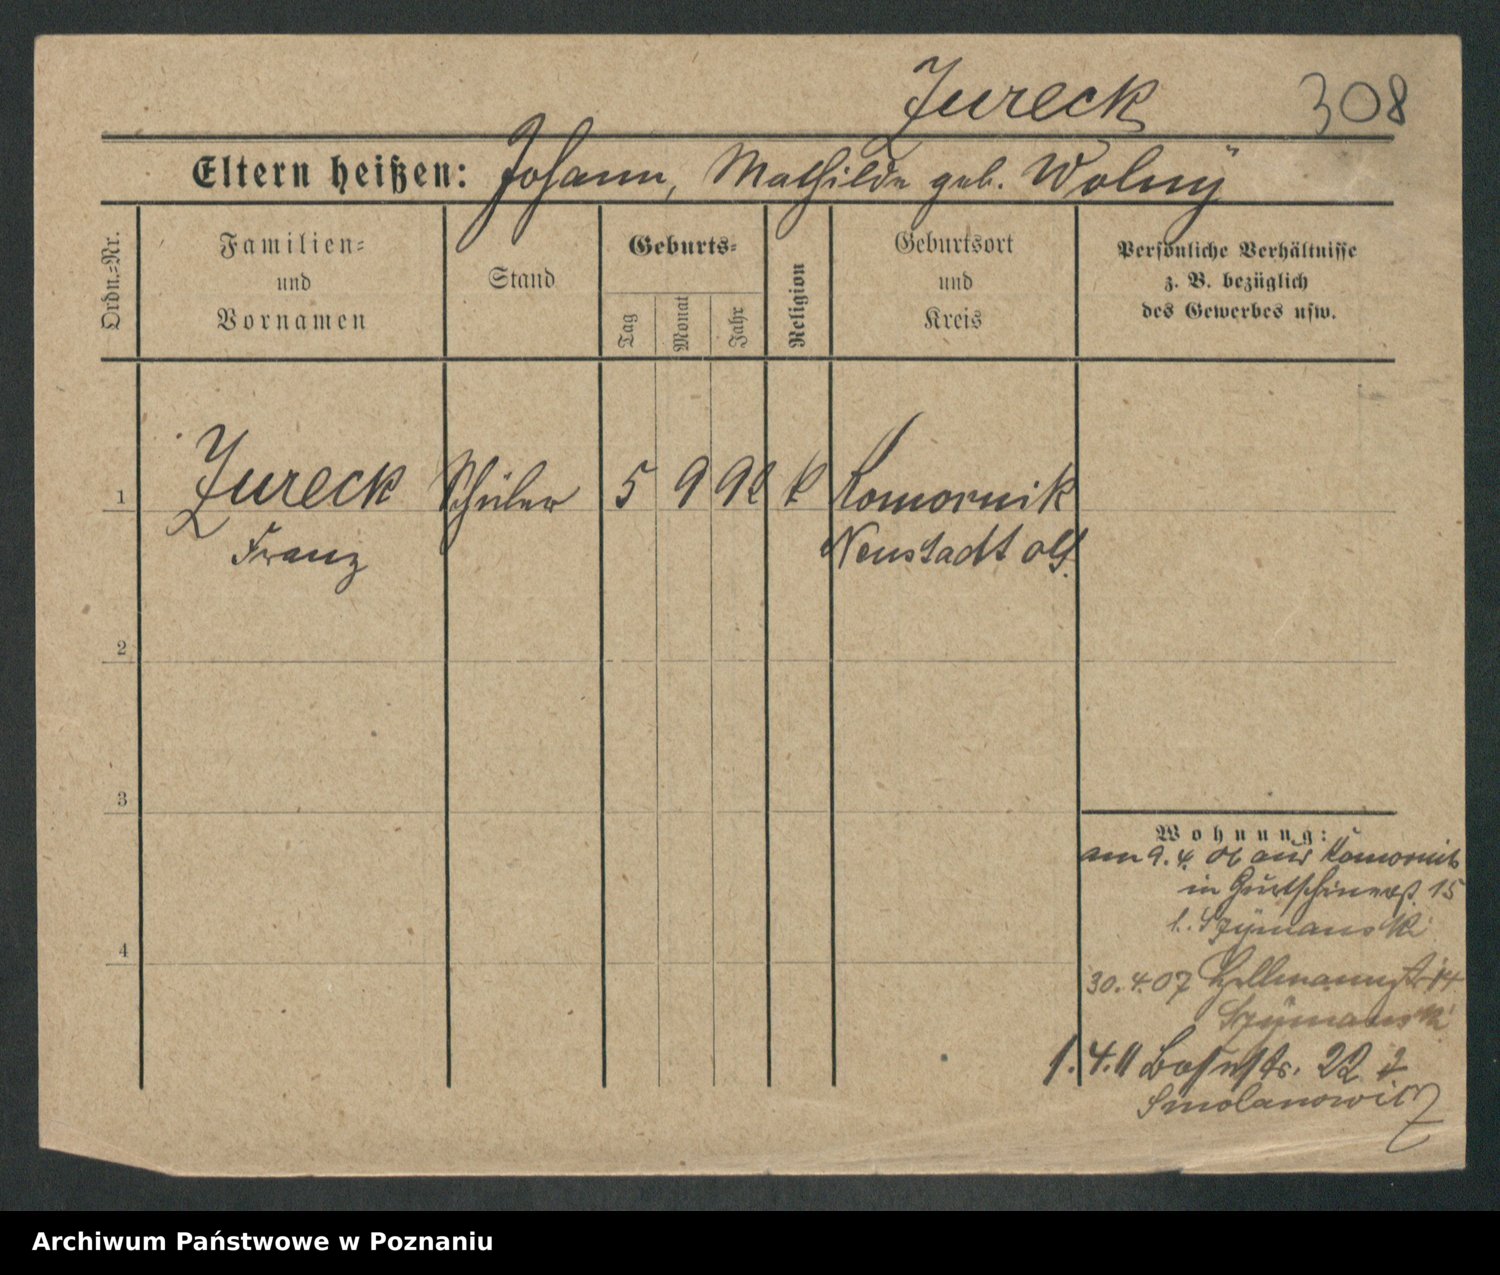 Jureck
308
Eltern heißen: Johann, Mathilde geb. Wolny
Ordn.=Nr.
Familien=
und
Vornamen
Stand
Geburts=
Tag
Monat
Jahr
Religion
Geburtsort
und
Kreis
Persönliche Verhältnisse
z. B. bezüglich
des Gewerbes usw.
1
Jureck Schüler 5 9 92 k Komornik
Franz
Neustadt o/s.
2
3
4
Wohnung:
am 9. 4. 06 aus Komornik
in 15
b. Szymanski
30.4.07 14
Szymanski
1.4.11 22
Smolanowicz
Archiwum Państwowe w Poznaniu